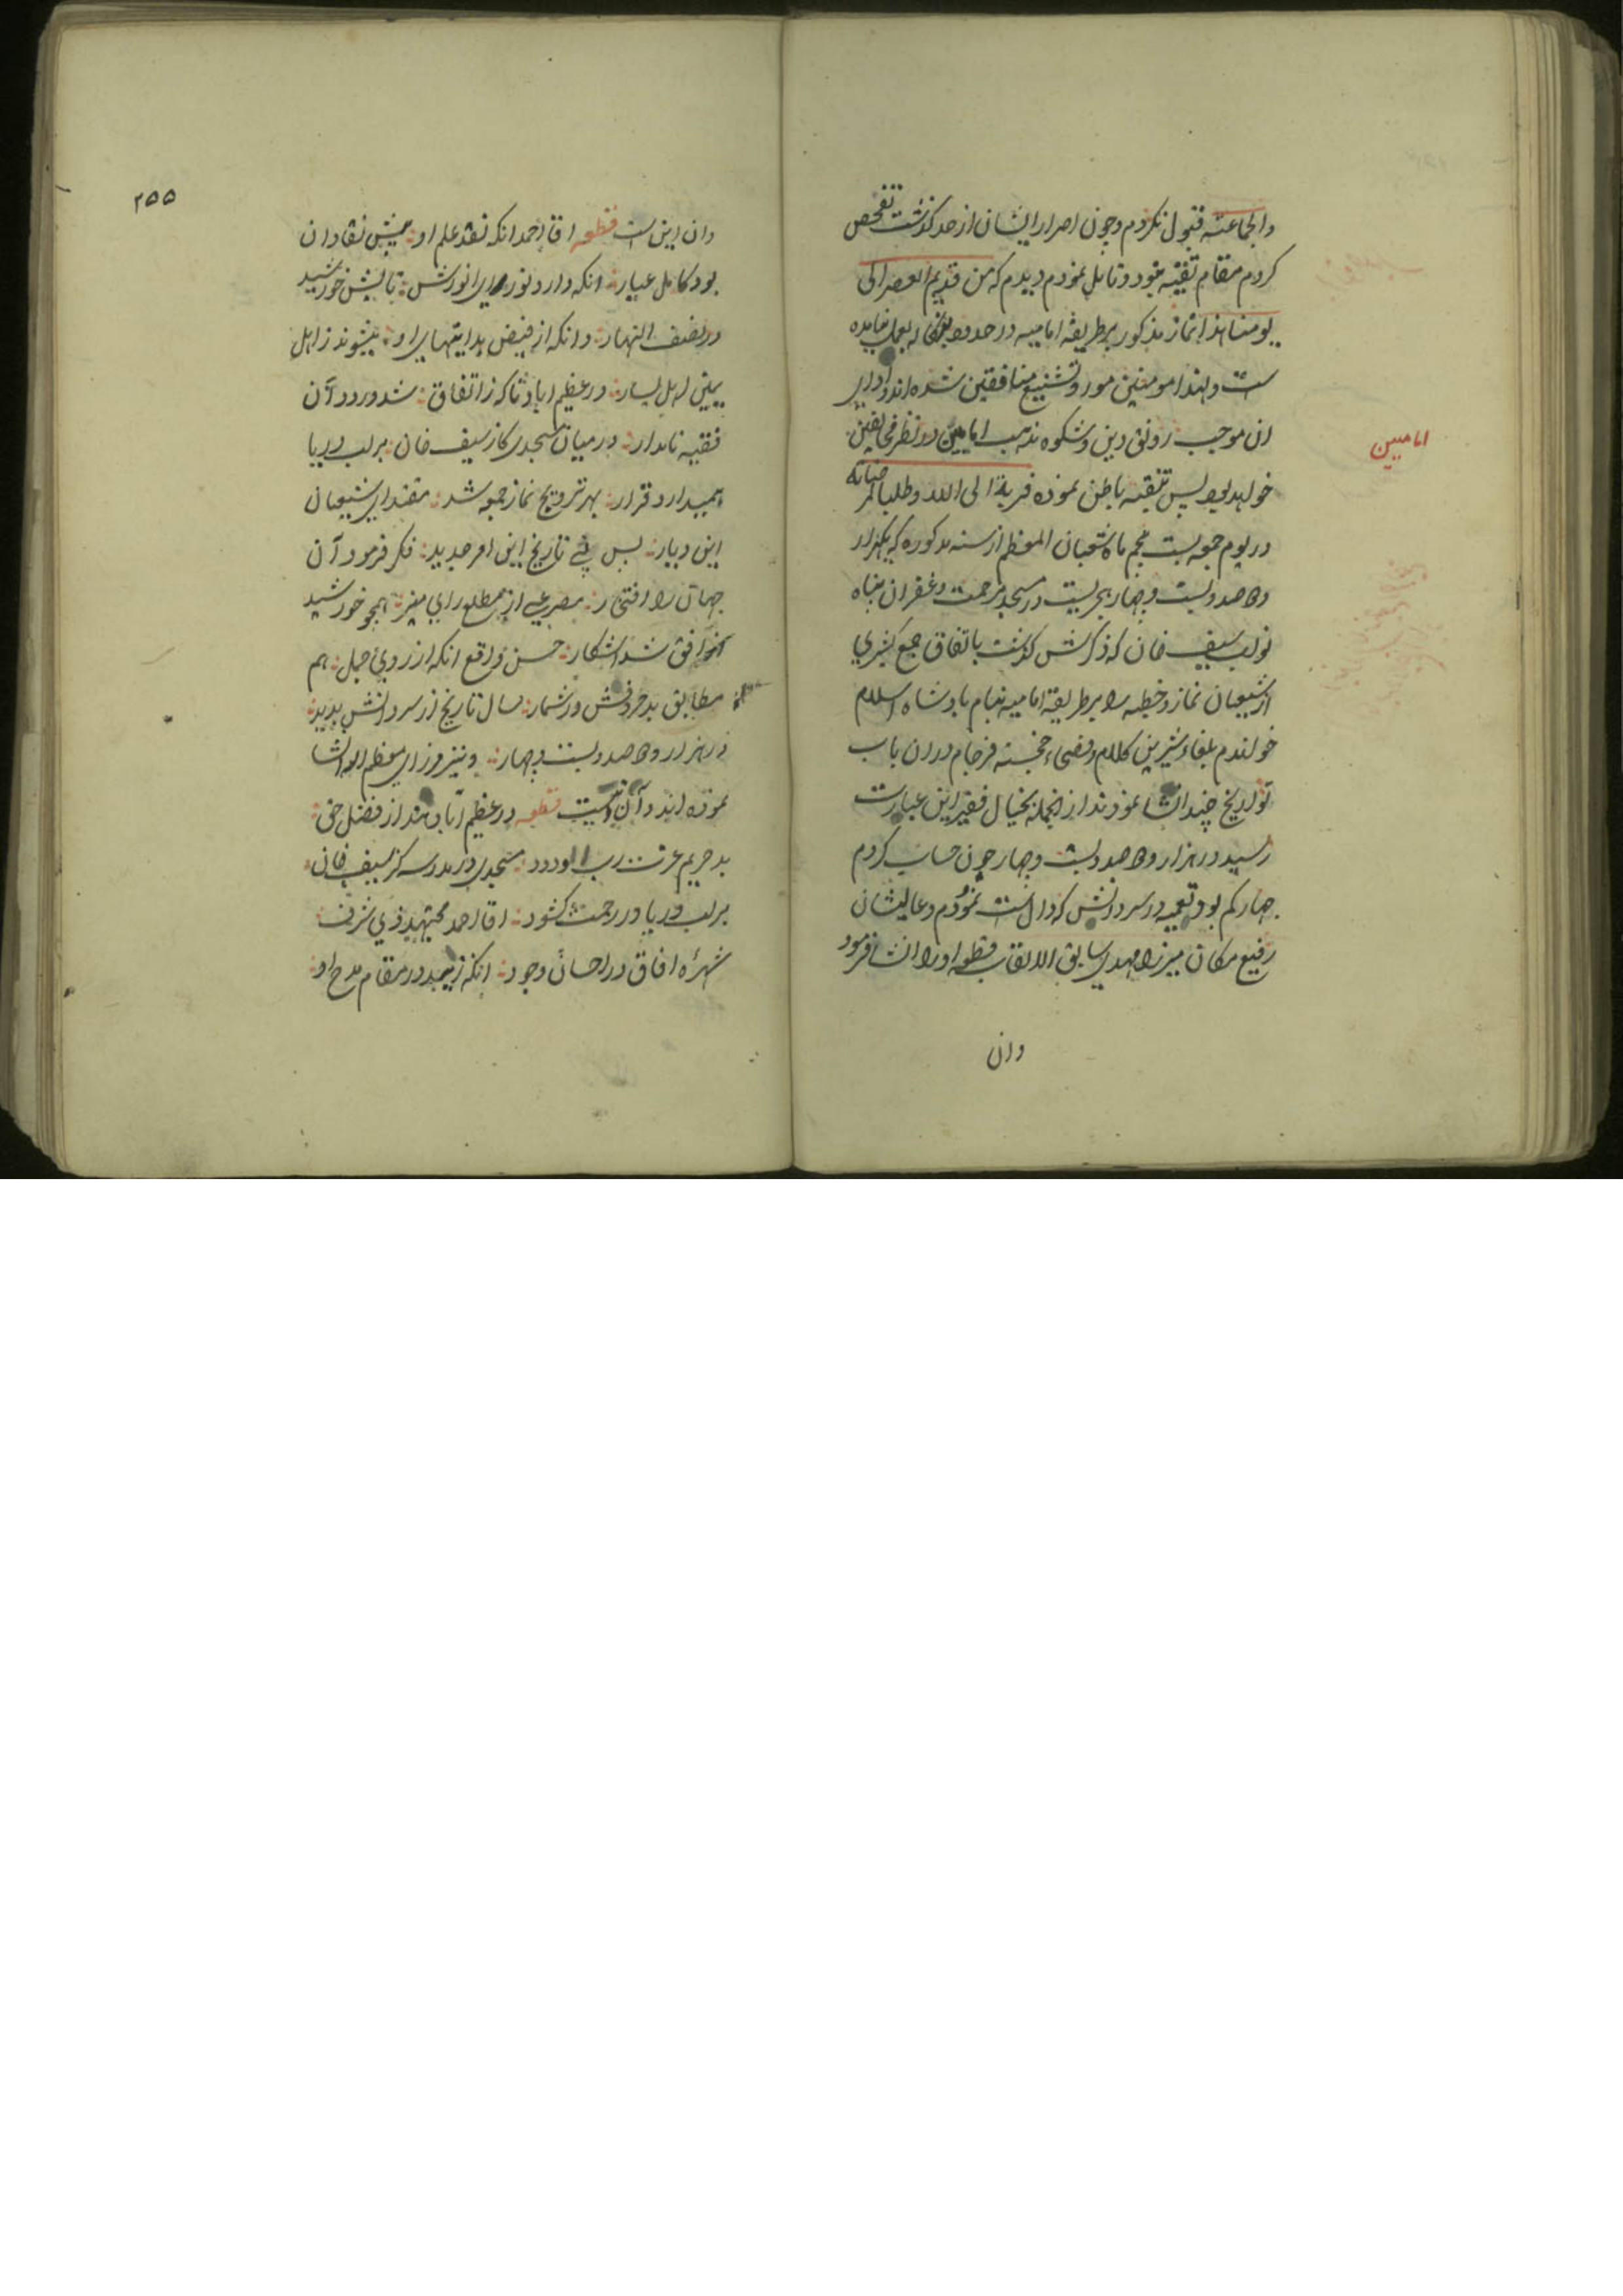 والجماعته قبول نکردم وچون اصرار ایشان از حد گذشت تفحص
کردم مقام تقیه نبود و تامل نمودم دیدم که من قدیم العصر الی
یومنا هذا نماز مذکور بر طریقه امامیه در حدود بعمل نیامده
ست ولهذا مومنین مورد تشنیع منافقین شده اند و ادای
ان موجب رونق دین و شکوه مذهب امامیین در نظر مخالفین
امامیین
خواهد بود پس تنقیه باطن نموده قربة الی الله وطلبا لمرضاته
در یوم جمعه بست پنجم ماه شعبان المعظم از سنه مذکوره که یکهزار
و دو صد و بست و چهار هجریست در مسجد مرحمت و غفران پناه
نواب سیف خان که ذکرش گذشت باتفاق جمع کثیری
از شیعیان نماز و خطبه را بر طریقة امامیه بنام پادشاه اسلام
خواندم بلغاء شیرین کلام و فصحاء خجسته فرجام در ان باب
تواریخ چند انشا نمودند از انجمله بخیال فقیر این عبارت
رسید در هزار و دو صد و بست و چهار چون حساب کردم
چهار کم بود تعمیه در سر دانش که دال است نمودم و عالیشان
رفیع مکان میرزا مهدی سابق الالقاب قطعه او را انشا فرمود
وان
۲۵۵
وان این ست قطعه اقا احمد انکه نقد علم او پیش نقادان
بود کامل عیار انکه دارد نور رای انورش تابش خورشید
در نصف النهار وانکه از فیض هدایتهای او میشوند ز اهل
یمین اهل یسار در عظیم اباد ناگه ز اتفاق شد ورود آن
فقیه نامدار در میان مسجدی کاز سیف خان بر لب دریا
همیدارد قرار بهر ترویج نماز جمعه شد مقتدای شیعیان
این دیار پس پئے تاریخ این امر جدید فکر فرمود آن
جهان را افتخار مصرعی از مطلع رای منیر همچو خورشید
از افق شد اشکار حسن واقع انکه از روی جمل هم
مطابق بد حروفش در شمار سال تاریخ از سر دانش بدید
در هزار و دو صد و بست و چهار و نیز میرزای معظم الیه انشا
نموده اند و آن نیست قطعه در عظیم آباد هند از فضل حق
بد حریم عزت رب الودود مسجدی در مدرسه کز سیف خان
بر لب دریا در رحمت کشود اقا احمد مجتهد ذی شرف
شهرهٔ افاق در احسان وجود انکه زیبد در مقام مدح او